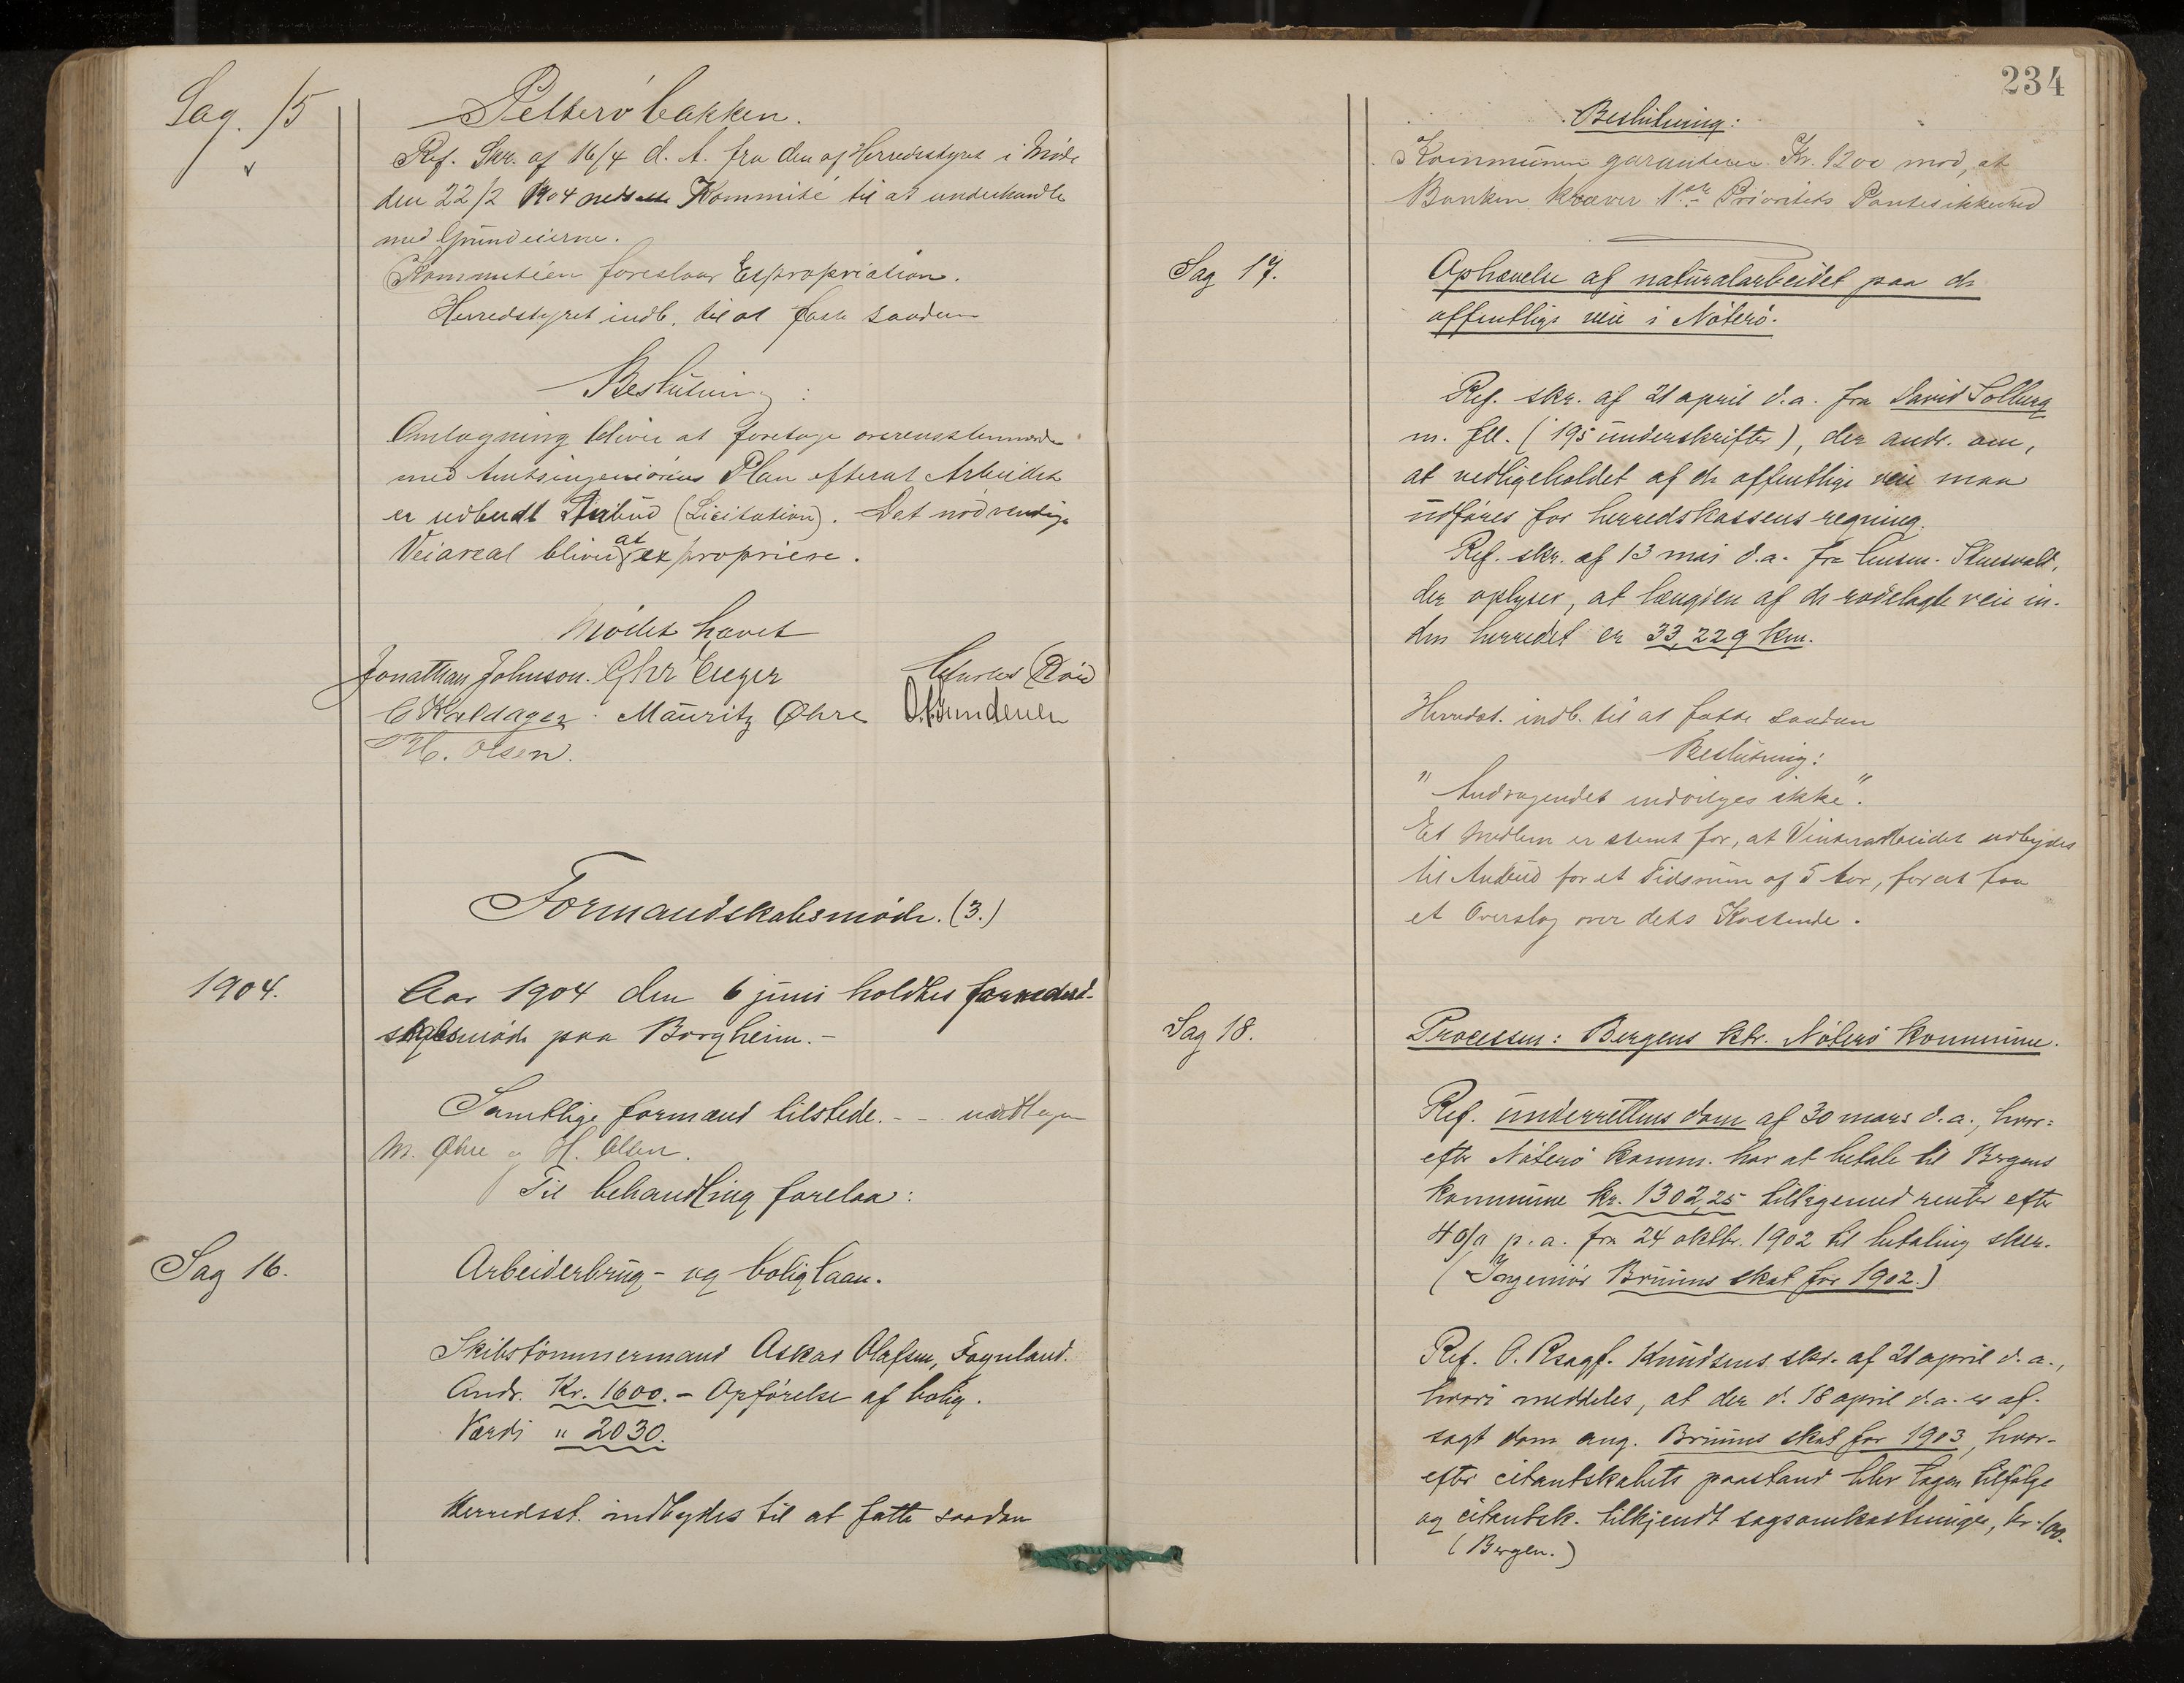 Sag. 15
Petterö bakken.
Ref. Skr. af 16/4 d. A. fra den af Herredsstyret i Möde
den 22/2 1904 nedsatte Kommité til at underhandle
med Grundeierne.
Kommitéen foreslaar Expropriation.
Herredstyret indb. til at fatte saadan
Beslutning:
Omlægning bliver at foretage overensstemmende
med Amtsingeniörens Plan efterat Arbeidet
er udbudt Anbud (Licitation). Det nödvendige
Veiareal bliver at expropriere.
Mödet hævet
Jonathan Johnson. Chr Eeger
Mauritz Øhre
H. Olsen.
Formandskabsmöde. (3.)
1904.
Aar 1904 den 6 juni holdtes formand-
skabsmöde paa Borgheim.-
Samtlige formænd tilstede. - undtagen
M. Øhre og H. Olsen.
Til behandling forelaa:
Sag 16.
Arbeiderbrug- og boliglaan.
Skibstömmermand Oskar Olafsen, Fagnland.
Andr. Kr. 1600.- Opförelse af bolig.
Værdi " 2030.
Herredsst. indbydes til at fatte saadan
234
Beslutning:
Kommunen garanterer Kr. 1200 mod, at
Banken kræver 1ste Prioritets Pantesikkerhed
Sag 17.
Ophævelse af naturalarbeidet paa de
offentlige veie i Nöterö.
Ref. skr. af 21 april d.a. fra David Solberg
m. fll. (195 underskrifter), der andr. om,
at vedligeholdet af de offentlige veie maa
udføres for herredskassens regning.
Ref. skr. af 13 mai d.a. fra lensm.
der oplyser, at længden af de rodelagte veie in-
den herredet er 33,229 km.
Herredst. indb. til at fatte saadan
Beslutning:
"Andragendet indvilges ikke".
Et Medlem er stemt for, at Vinterarbeidet udbydes
til Anbud for et Tidsrum af 5 Aar, for at faa
et Overslag over dets Kostende.
Sag 18.
Processen: Bergens ktr. Nöterö kommune.
Ref. underrettens dom af 30 mars d.a., hvor-
efter Nöterö komm. har at betale til Bergens
kommune kr. 1302,25 tilligemed renter efter
4 o/o p.a. fra 24 oktbr. 1902 til betaling sker.
(Ingeniör Bruuns skat for 1902.)
Ref. O. Rsagf. Knudsens skr. af 21 april d.a.,
hvori meddeles, at der d. 18 april d.a. er af-
sagt dom ang. Bruuns skat for 1903, hvor-
efter citantskabets paastand blev tagen tilfölge
og citantsk. tilkjendt sagsomkostninger, kr. 100.
(Bergen.)